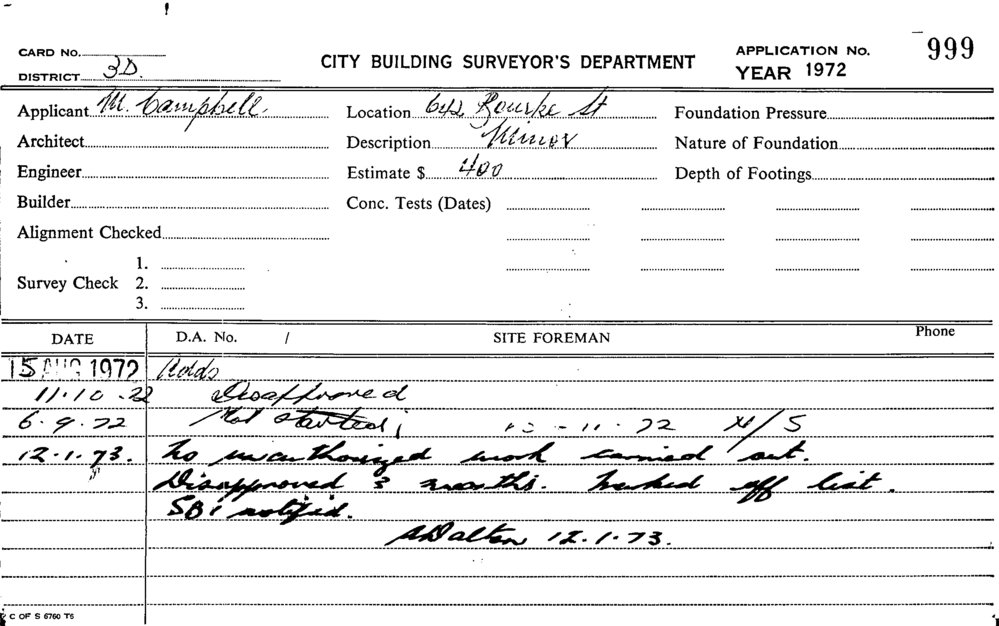 CARD No.
DISTRICT 3D.
CITY BUILDING SURVEYOR'S DEPARTMENT
APPLICATION No. 999
YEAR 1972
Applicant M. Campbell Location 642 Bourke St Foundation Pressure
Architect Description Minor Nature of Foundation
Engineer Estimate $ 400 Depth of Footings
Builder Conc. Tests (Dates)
Alignment Checked
1.
Survey Check 2.
3.
DATE D.A. No. / SITE FOREMAN Phone
15 AUG 1972 Adds
11.10.72 Disapproved
6.9.72 Not started; 11.72 N/S
12.1.73. No unauthorized work carried out.
Disapproved 3 months. Marked off list.
SBI notified.
ADalton 12.1.73.
C OF S 6760 T5